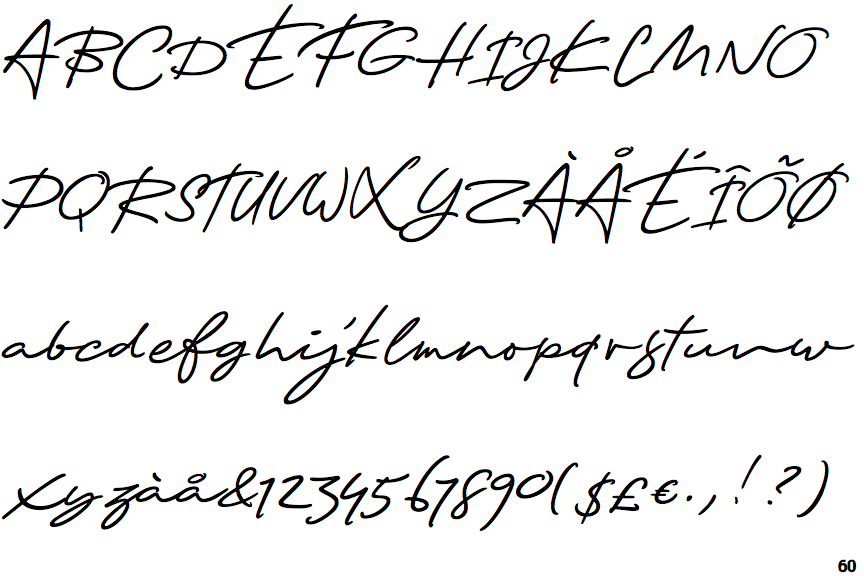 ABCDEFGHIJKLMNO
PQRSTUVWXYZÀÅÉÎÕØ
abcdefghijklmnopqrstuvw
xyzàå&1234567890($£€.,!?)
60